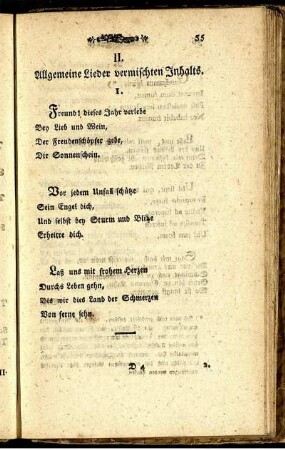 55
II.
Allgemeine Lieder vermischten Inhalts.
1.
Freund! dieses Jahr verlebe
Bey Lieb und Wein,
Der Freudenschöpfer gebe,
Dir Sonnenschein.
Vor jedem Unfall schütze
Sein Engel dich,
Und selbst bey Sturm und Blitze
Erheitre dich.
Laß uns mit frohem Herzen
Durchs Leben gehn,
Bis wir dies Land der Schmerzen
Von ferne sehn.
D 4
2.